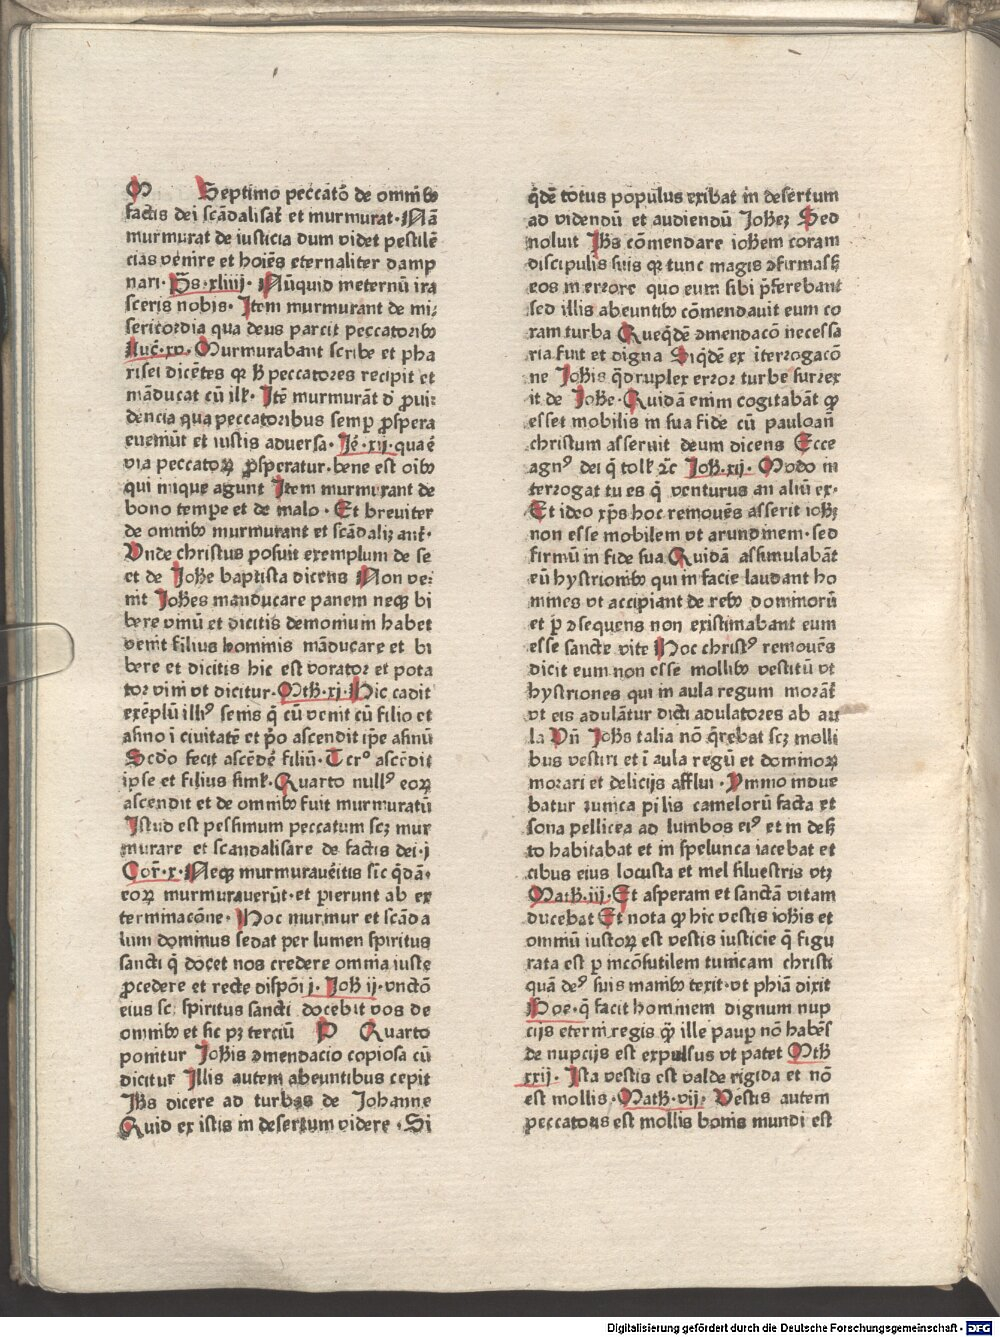 M Septimo peccato᷑ de omnibꝰ
factis dei scādalisat᷑ et murmurat· Nā
murmurat de iusticia dum videt pestilē
cias venire et hoīes eternaliter damp
nari· Ps·xliiij· Nūquid ineternū ira
sceris nobis· Item murmurant de mi⸗
sericordia qua deus parcit peccatoribꝰ
Luc̄·xv· Murmurabant scribe et pha
risei dicētes qꝛ hͥ peccatores recipit et
māducat cū ill᷑· Itē murmurāt d̄ ꝓui⸗
dencia qua peccatoribus semꝑ ꝓspera
eueniūt et iustis aduersa· Jē·xij· qua ē
via peccatoꝝ ꝓsperatur· bene est oībꝰ
qui inique agunt Item murmurant de
bono tempe et de malo· Et breuiter
de omnibꝰ murmurant et scādaliȝant᷑·
Vnde christus posuit exemplum de se
et de Johē baptista dicens Non ve⸗
nit Johēs manducare panem neqꝫ bi
bere vinū et dicitis demonium habet
venit filius hominis māducare et bi
bere et dicitis hic est vorator et pota
tor vini vt dicitur· Mth̄·xj· Hic cadit
exēplū illiꝰ senis q̄ cū venit cū filio et
asino ī ciuitatē et pͥo ascendit ip̄e asinū
Scdo fecit ascēdē filiū· Tercͦ ascēdit
ipse et filius simľ· Quarto nullꝰ eoꝝ
ascendit et de omnibꝰ fuit murmuratū
Istud est pessimum peccatum scꝫ mur
murare et scandalisare de factis dei· j
Cor̄·x· Neqꝫ murmuraueītis sic q̄dā·
eoꝝ murmurauerūt· et perierunt ab ex
terminacōne· Hoc murmur et scāda
lum dominus sedat per lumen spiritus
sancti q̄ docet nos credere omnia iuste
ꝓcedere et recte dispōi j· Joh̄ ij· vnctō
eius sc· spiritus sancti docebit vos de
omnibꝰ et sic pꝫ terciū P Quarto
ponitur Johīs ꝯmendacio copiosa cū
dicitur Illis autem abeuntibus cepit
Jhs dicere ad turbas de Johanne
Quid existis in desertum videre· Si
q̄dē totus populus exibat in desertum
ad videndū et audiendū Johēȝ Sed
noluit Jhs cōmendare iohēm coram
discipulis suis qꝛ tunc magis ꝯfirmasſꝫ
eos in errore quo eum sibi p̄ferebant
sed illis abeuntibꝰ cōmendauit eum co
ram turba Queq̄dē ꝯmendacō necessa
ria fuit et digna Siq̄dē ex īterrogacō
ne Johīs q̄druplex error turbe surrex
it de Johe· Quidā enim cogitabāt ꝙ
esset mobilis in sua fide cū pauloan̄
christum asseruit deum dicens Ecce
agnꝰ dei q̄ tolľ ꝛc̄ Joh̄·xij· Modo in
terrogat tu es q̄ venturus an aliū ex·
Et ideo xp̄s hoc remouēs asserit iohēȝ
non esse mobilem vt arundinem· sed
firmū in fide sua Quidā assimulabāt
eū hystrionibꝰ qui in facie laudant ho
mines vt accipiant de rebꝰ dominorū
et ꝑ ꝯsequens non existimabant eum
esse sancte vite Hoc christꝰ remouēs
dicit eum non esse mollibꝰ vestitū vt
hystriones qui in aula regum morāt᷑
vt eis adulātur dicti adulatores ab au
la Vn̄ Johēs talia nō q̄rebat scꝫ molli
bus vestiri et ī aula regū et dominoꝝ
morari et delicijs afflui· Ymmo indue
batur tunica pilis camelorū facta et
sona pellicea ad lumbos eiꝰ et in deſꝫ
to habitabat et in spelunca iacebat et
cibus eius locusta et mel siluestris vtꝫ
Math̄·iij· Et asperam et sanctā vitam
ducebat Et nota ꝙ hic vestis iohīs et
omniū iustoꝝ est vestis iusticie q̄ figu
rata est ꝑ incōsutilem tunicam christi
quā deꝰ suis manibꝰ texit· vt phīa dixit
Hoe· q̄ facit hominem dignum nup
cijs eterni regis ꝙ ille pauꝑ nō habēs
de nupcijs est expulsus vt patet Mth̄
xxij· Ista vestis est valde rigida et nō
est mollis· Math̄·vij· Vestis autem
peccatoris est mollis bonis mundi est
Digitalisierung gefördert durch die Deutsche Forschungsgemeinschaft - DFG